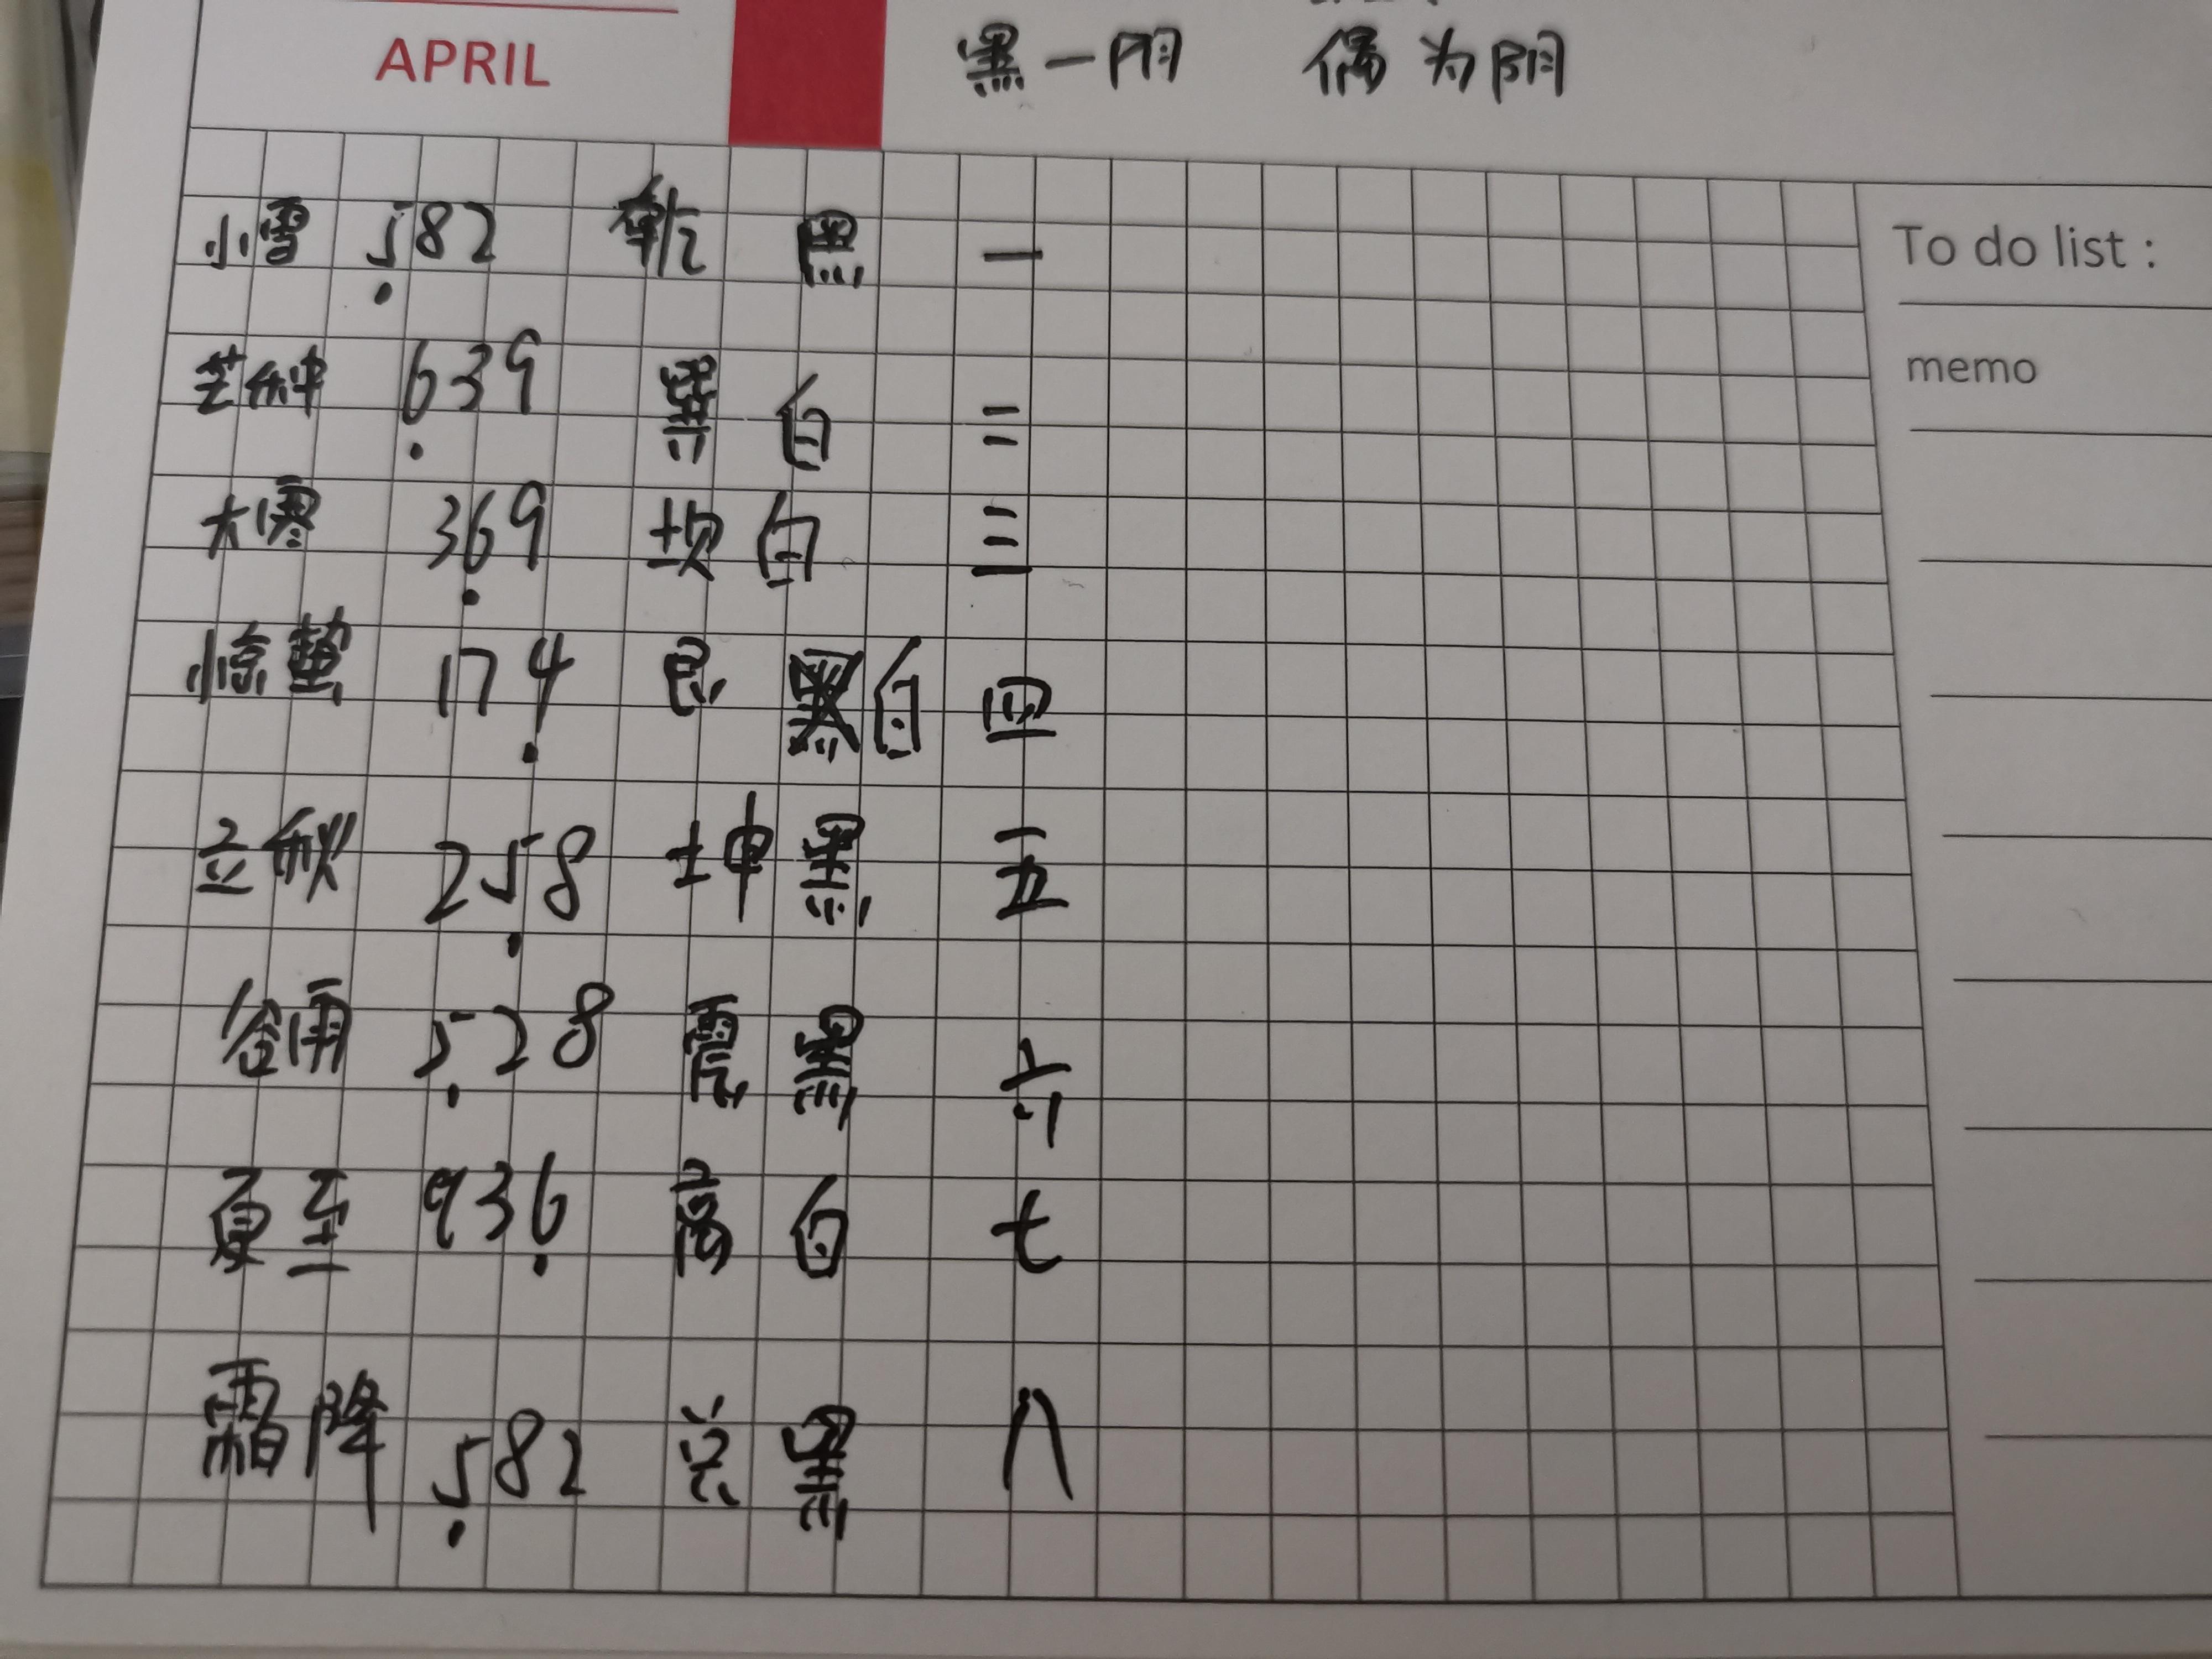 APRIL
黑一阴 偶为阴
小雪 582 乾 黑 一
To do list :
芒种 639 巽 白 二
memo
大寒 369 坝 白 三
惊蛰 174 艮 白 四
立秋 258 坤 黑 五
谷雨 528 震 黑 六
夏至 936 离 白 七
霜降 582 兑 黑 八